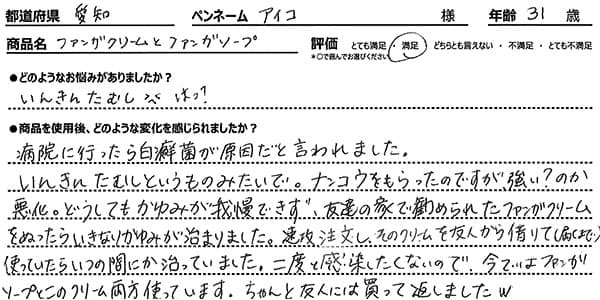 都道府県 愛知 ペンネーム アイコ 様 年齢 31 歳
商品名 ファンガクリームとファンガソープ 評価 とても満足・満足・どちらとも言えない・不満足・とても不満足
*○で囲んでお選びください
●どのようなお悩みがありましたか？
いんきんたむし
●商品を使用後、どのような変化を感じられましたか？
病院に行ったら白癬菌が原因だと言われました。
いんきんたむしというものみたいで。ナンコウをもらったのですが、強い?のか
悪化。どうしてもかゆみが我慢できず、友達の家で勧められたファンガクリーム
をぬったらいきなりかゆみが治まりました。速攻注文し、そのクリームを友人から借りて届くまで
使っていたらいつの間にか治っていました。二度と感染したくないので、今ではファンガ
ソープとこのクリーム両方使っています。ちゃんと友人には買って返しましたw